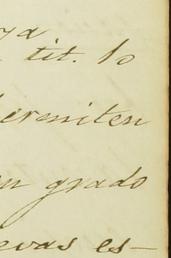 ya
tit. lo
ermiten
n grado
evas es-